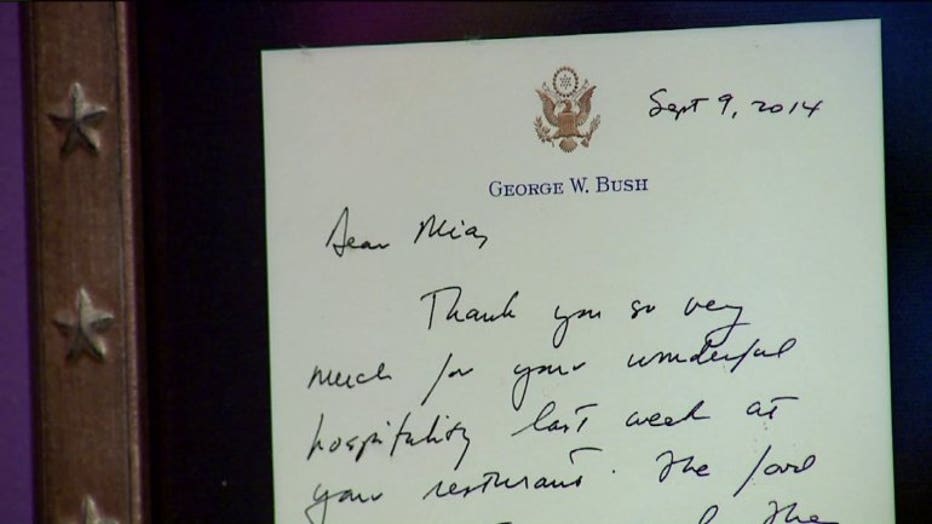 Sept 9, 2014
GEORGE W. BUSH
Dear Mia,
Thank you so very
much for your wonderful
hospitality last week at
your resturant. The food
The